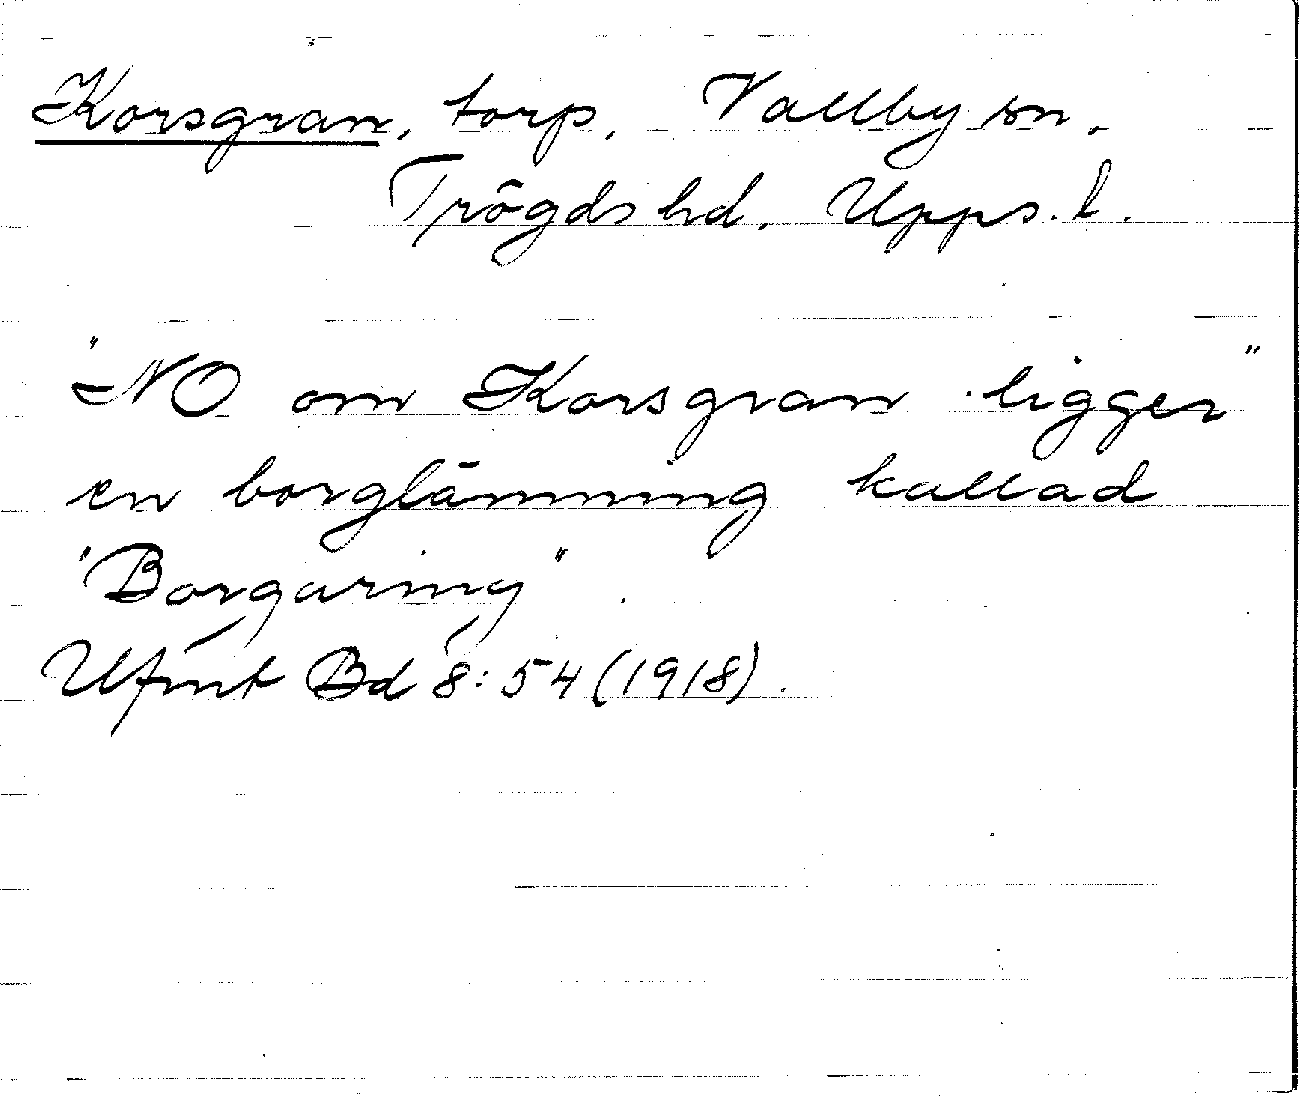 Korsgran, torp, Vallby sn.
Trögds hd. Upps. l.
"NO om Korsgran ligger"
en borglämning kallad
"Borgaring".
Ufmt Bd 8:54 (1918).